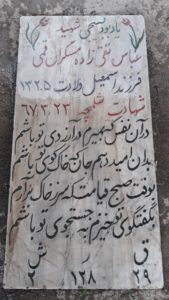 یادبود بسیجی شهید
عباس تقی زاده مسگران قمی
فرزند اسمعیل ولادت ۱۳۲۵
شهادت شلمچه ۶۷٫۳٫۲۳
در آن نفس که بمیرم در آرزوی تو باشم
بدان امید دهم جان که خاک کوی تو باشم
بوقت صبح قیامت که سر ز خاک برآرم
بگفتگوی تو خیزم به جستجوی تو باشم
ق ر ش
۲۹ ۱۲۸ ۲